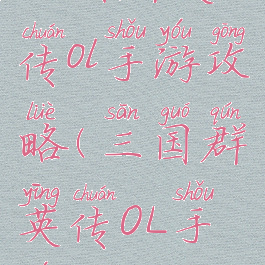 chuán shǒu yóu gōng
传OL手游攻
lüè sān guó qún
略(三国群
yīng chuán shǒu
英传OL手